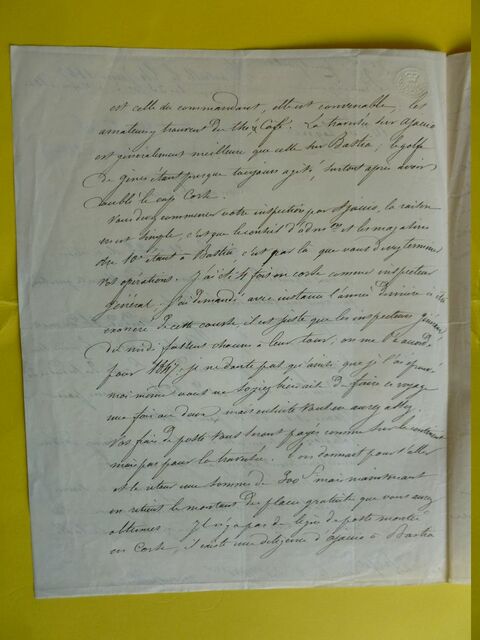 est celle du commandant, elle est convenable, les
amateurs trouvent du thé & café. La traversée sur Ajaccio
est généralement meilleure que celle sur Bastia, le golfe
de gênes étant presque toujours agité, surtout après avoir
doublé le cap Corse.
Vous devez commencer votre inspection par Ajaccio, la raison
en est simple, c'est que le conseil d'adm.on et les magasins
du 10e étant à Bastia, c'est par là que vous devez terminer
vos opérations. J'ai été 4 fois en corse comme inspecteur
général. J'ai demandé avec instance l'année dernière à être
exonéré de cette course, il est juste que les inspecteurs généraux
du midi fassent chacun à leur tour, on me l'a accordé
pour 1847; je ne doute pas qu'ainsi que je l'ai éprouvé
moi même vous ne soyez bien aise de faire ce voyage
une fois ou deux, mais ensuite vous en aurez assez.
Vos frais de poste vous seront payés comme sur le continent
mais pas pour la traversée. L'on connait pour l'aller
et le retour une somme de 300 f mais maintenant
on retient le montant des places gratuites que vous avez
obtenues. Il n'y a pas de ligne de poste montée
en Corse, il existe une diligence d'Ajaccio à Bastia